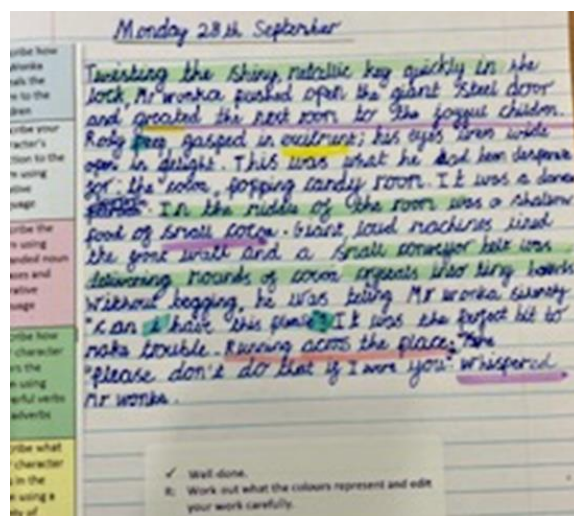 Monday 28th September
cribe how
Wonka
als the
n to the
dren
cribe your
racter's
tion to the
m using
ative
uage
cribe the
m using
anded noun
ases and
rative
uage
cribe how
character
rs the
m using
erful verbs
adverbs
ribe what
character
s in the
m using a
ty of
Twisting the shiny metallic key quickly in the
lock, Mr wonka pushed open the giant steel door
and greated the next room to the joyful children.
Rody gasped in exitment; his eyes wide
open in delight. This was what he had been desperate
for: the color, popping candy room. It was a
In the middle of the room was a shalow
pool of small cocoa. Giant loud machines lined
the front wall and a small conveyor belt was
delivering mounds of cocoa crystals into tiny
Without begging, he was telling Mr wonka
"can I have this please" It was the perfect bit to
make trouble. Running acros the place;
"please don't do that if I were you" whispered
Mr wonka.
✓ Well done.
R: Work out what the colours represent and edit
your work carefully.